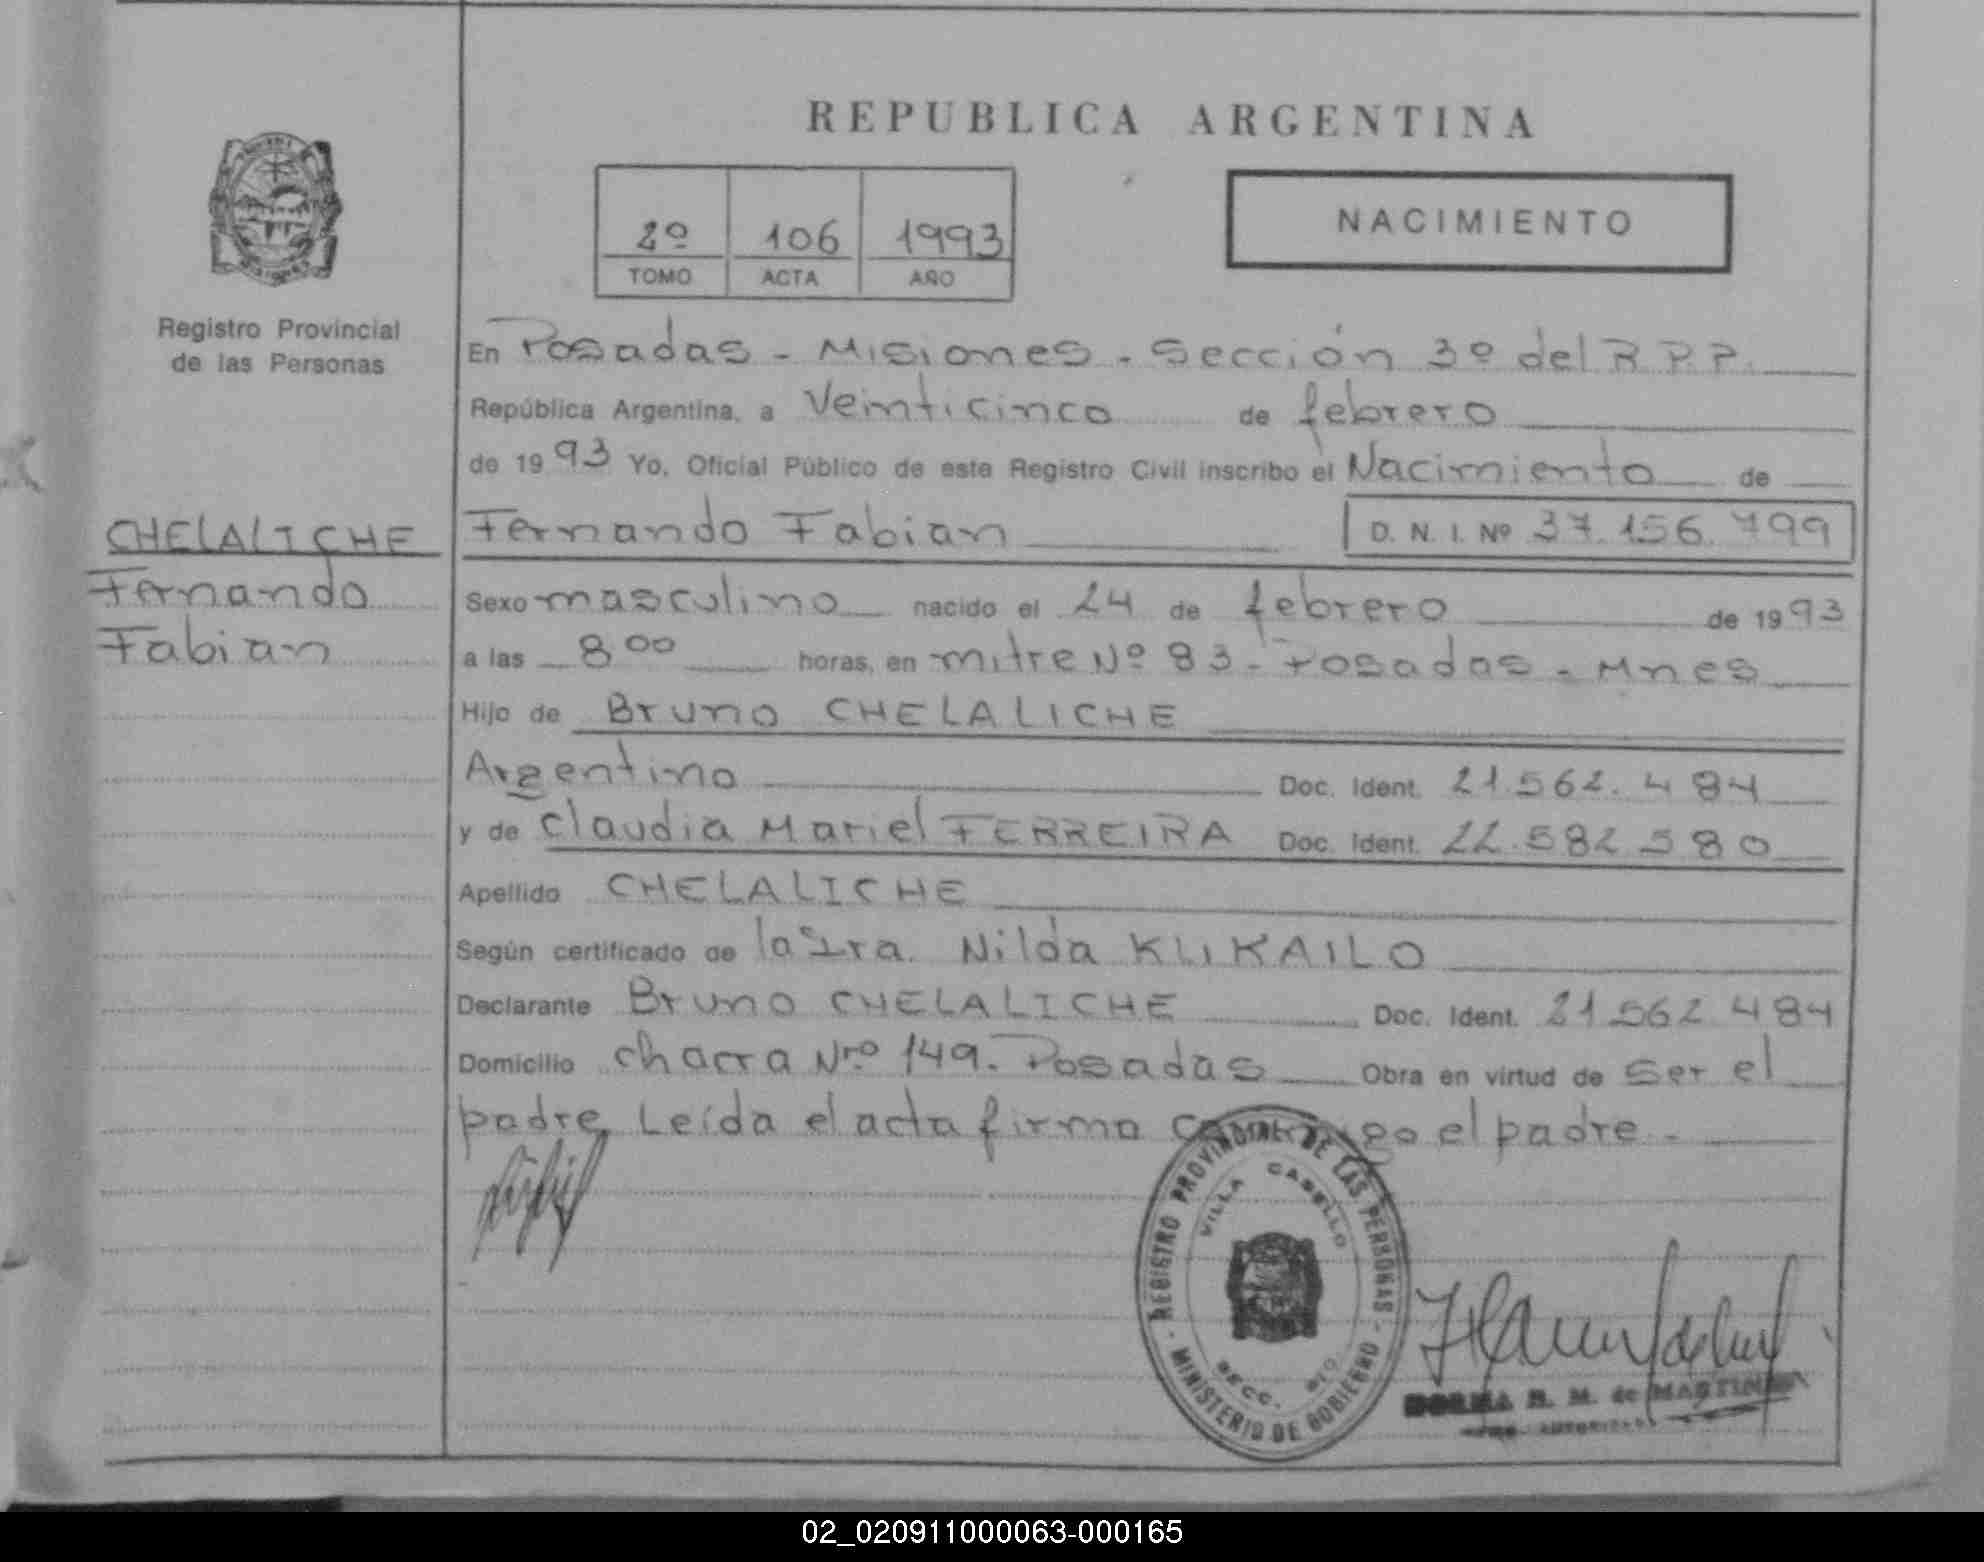 REPUBLICA ARGENTINA
2º 106 1993
TOMO ACTA AÑO
NACIMIENTO
Registro Provincial
de las Personas
CHELALICHE
Fernando
Fabian
En Posadas - Misiones - Sección 3º del R.P.P.
República Argentina, a Veinticinco de febrero
de 1993 Yo, Oficial Público de este Registro Civil inscribo el Nacimiento de
Fernando Fabian D. N. I. Nº 37.156.799
Sexo masculino nacido el 24 de febrero de 1993
a las 8 00 horas, en mitre Nº 83 - Posadas - Mnes
Hijo de Bruno CHELALICHE
Argentino Doc. Ident. 21.562.484
y de Claudia Mariel FERREIRA Doc. Ident. 22.582 580
Apellido CHELALICHE
Según certificado de la Sra. Nilda KLIKAILO
Declarante Bruno CHELALICHE Doc. Ident. 21 562 484
Domicilio Chacra Nrº 149. Posadas Obra en virtud de ser el
padre. Leída el acta firma conmigo el padre.-
REGISTRO PROVINCIAL DE LAS PERSONAS
VILLA CABELLO
SECC.
- MINISTERIO DE GOBIERNO -
NORMA R. M. de MARTINEZ
02_020911000063-000165